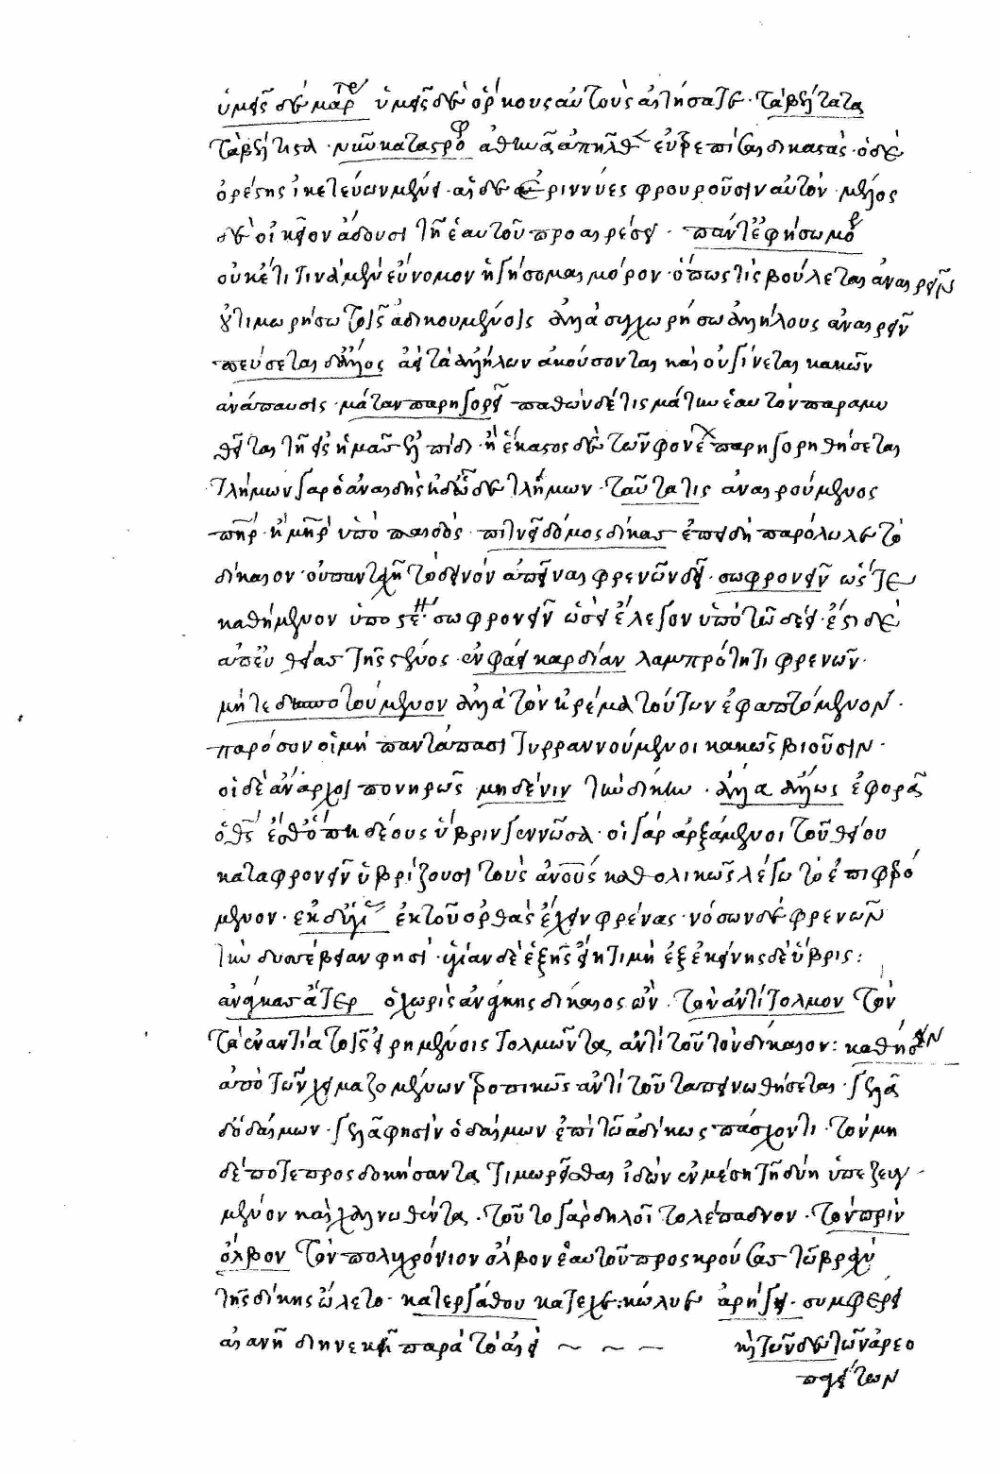 ὑμεῖς δὲ μαρτ ὑμεῖς δὲ ὅρκους αὐτοὺς αἰτήσατε· τὰ βέλτατα
τὰ βέλτιστα· νῦν καταστρο ἀθωᾶς ἀπῆλθε εὐτρεπίσαι δικαστάς· ὁ δὲ
ὀρέστης ἱκετεύων μένει· αἱ δὲ ἐριννύες φρουροῦσιν αὐτόν· μέλος
δὲ οἰκεῖον ᾄδουσι τῇ ἑαυτοῦ προαιρέσει· πάντ ἐφήσω μο
οὐκέτι τινὰ μὲν εὔνομον ἡγήσομαι μόρον· ὅπως τὶς βούλεται ἀναιρεῖν
τιμωρήσω τοῖς ἀδικουμένοις ἀλλὰ συγχωρήσω ἀλλήλους ἀναιρεῖν
πεύσεται δ ἄλλος ἀεὶ τὰ ἀλλήλων ἀκούσονται καὶ οὐ γίνεται κακῶν
ἀνάπαυσις· μάταν παρηγορεῖ παθὼν δέ τις μάτην ἑαυτὸν παραμυ
θεῖται τῇ εἰς ἡμᾶς ἐλπίδι· ἢ ἕκαστος δὲ τῶν φονέ παρηγορηθήσεται
τλήμων γὰρ ὁ ἀναιδὴς ὧδε τλήμων· ταῦτα τις ἀναιρούμενος
πηρ· ἢ μηρ ὑπὸ παιδός· πιτνεῖ δόμος δίκας ἐπειδὴ παρόλωλε τὸ
δίκαιον· οὐ πανταχῆ τὸ δεινὸν ἀπεῖναι φρενῶν δεῖ· σωφρονεῖν ὥστε
καθήμενον ὑπὸ στε· σωφρονεῖν ὡσεὶ ἔλεγον ὑπὸ τῷ δέει· ἔστι δὲ
ἀπευθείας τῆς στένος· ἐν φάει καρδίαν λαμπρότητι φρενῶν·
μήτε δεσποτούμενον ἀλλὰ τὸν κρέμα τούτων ἐφαπτόμενον·
παρόσον οἱ μὴ παντάπασι τυρραννούμενοι κακῶς βιοῦσιν·
οἱ δὲ ἄναρχοι πονηρῶς μηδένιν τὼ δήκω· ἀλλα ἄλλως ἐφορᾶ
ὁ θς ἔσθ ὅπη δέους ὕβριν γεννῶσα· οἱ γὰρ ἀρξάμενοι τοῦ θείου
καταφρονεῖν ὑβρίζουσι τοὺς ἀνους καθολικῶς λέγω τὸ ἐπιφερό
μενον· ἐκ δ ὑγι ἐκ τοῦ ὀρθὰς ἔχειν φρένας· νόσων δὲ φρενῶν
τὴν δυσσέβειαν φησί· ὑγίαν δὲ ἑξῆς ᾗ τιμὴ ἐξ ἐκείνης δὲ ὕβρις:
ἀνάγκας ἄτερ ὁ χωρὶς ἀνάγκης δίκαιος ὤν· τὸν ἀντίτολμον τὸν
τὰ ἐναντία τοῖς εἰρημένοις τολμῶντα, ἀντὶ τοῦ τὸν δίκαιον: καθήσειν
ἀπὸ τῶν χειμαζομένων τροπικῶς ἀντὶ τοῦ ταπεινωθήσεται· γελᾶ
δ ὁ δαίμων· γελᾶ φησὶν ὁ δαίμων ἐπὶ τῷ ἀδίκως πάσχοντι· τὸν μη
δέποτε προσδοκήσαντα τιμωρεῖσθαι ἰδὼν ἐν μέσῃ τῇ δύῃ ὑπεζευγ
μένον καὶ χαλινωθέντα· τοῦτο γὰρ δηλοῖ τὸ λέπαδνον· τὸν πρὶν
ὄλβον τὸν πολυχρόνιον ὄλβον ἑαυτοῦ προσκρούσας τῷ βράχει
τῆς δίκης ὤλετο· κατερgάθου κάτεχε: κώλυε ἀρήγει· συμφέρει
αἰανῆ διηνεκῆ παρὰ τὸ ἀεὶ ~ ~ — κλητῶν δὲ τῶν ἀρεο
παγιτῶν